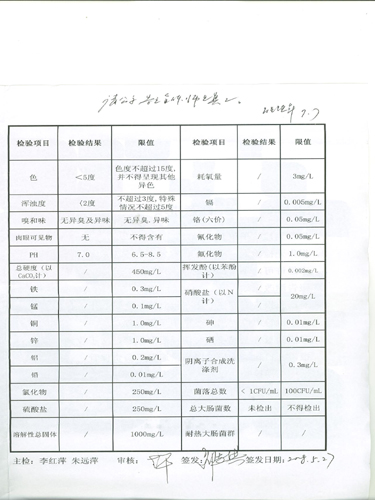 检验项目 检验结果 限值 检验项目 检验结果 限值
色 <5度 色度不超过15度,并不得呈现其他异色 耗氧量 / 3mg/L
浑浊度 〈2度 不超过3度,特殊情况不超过5度 镉 / 0.005mg/L
嗅和味 无异臭及异味 无异臭、异味 铬(六价) / 0.05mg/L
肉眼可见物 无 不得含有 氰化物 / 0.05mg/L
PH 7.0 6.5-8.5 氟化物 / 1.0mg/L
总硬度(以CaCO₃计) / 450mg/L 挥发酚(以苯酚计) / 0.002mg/L
铁 / 0.3mg/L 硝酸盐(以N计) / 20mg/L
锰 / 0.1mg/L /
铜 / 1.0mg/L 砷 / 0.01mg/L
锌 / 1.0mg/L 硒 / 0.01mg/L
铝 / 0.2mg/L 阴离子合成洗涤剂 / 0.3mg/L
铅 / 0.01mg/L
氯化物 / 250mg/L 菌落总数 < 1CFU/mL 100CFU/mL
硫酸盐 / 250mg/L 总大肠菌数 未检出 不得检出
溶解性总固体 / 1000mg/L 耐热大肠菌群 / /
主检:李红萍 朱远萍 审核: 签发: 签发日期:2008.5.27